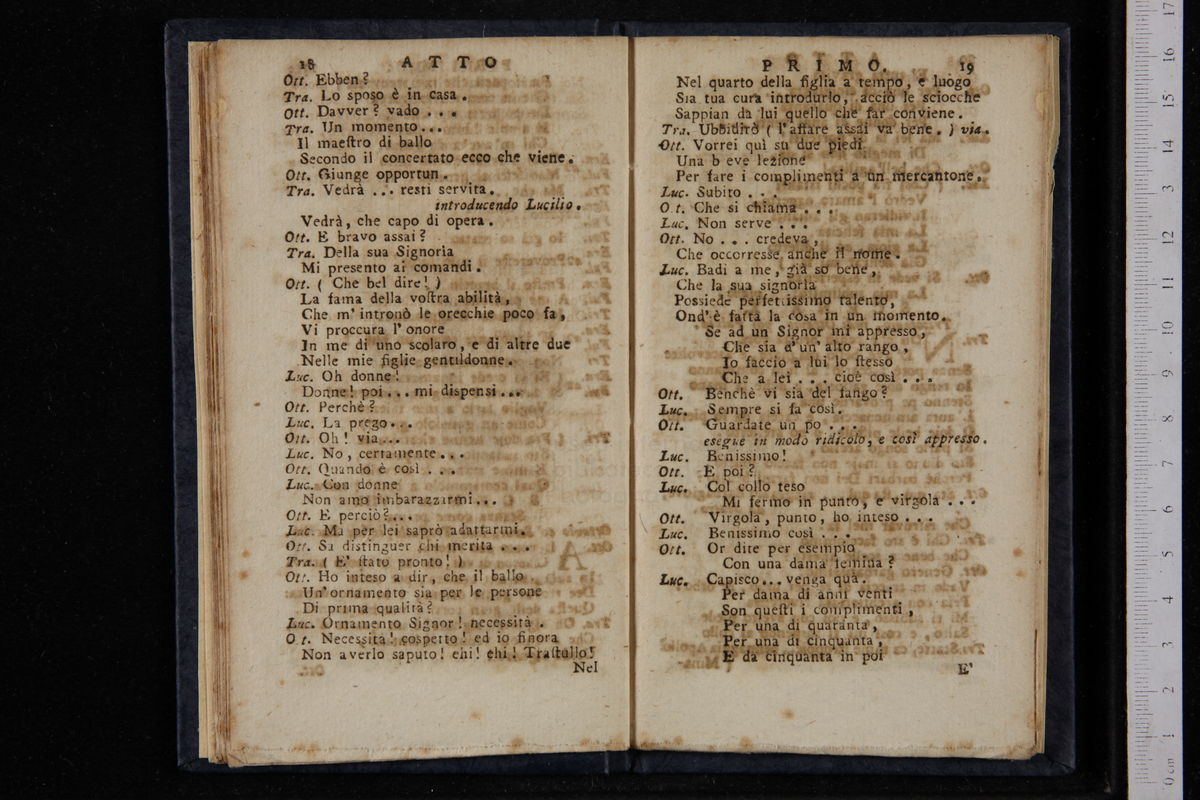 18 ATTO
Ott. Ebben?
Tra. Lo sposo è in casa.
Ott. Davver? vado ...
Tra. Un momento...
Il maeſtro di ballo
Secondo il concertato ecco che viene.
Ott. Giunge opportun.
Tra. Vedrà ... resti servita.
introducendo Lucilio.
Vedrà, che capo di opera.
Ott. E bravo assai?
Tra. Della sua Signoria
Mi presento ai comandi.
Ott. ( Che bel dire! )
La fama della voſtra abilità,
Che m' intronò le orecchie poco fa,
Vi proccura l' onore
In me di uno scolaro, e di altre due
Nelle mie figlie gentildonne.
Luc. Oh donne!
Donne! poi... mi dispensi...
Ott. Perchè?
Luc. La prego...
Ott. Oh! via...
Luc. No, certamente...
Ott. Quando è così ...
Luc. Con donne
Non amo imbarazzarmi...
Ott. E perciò?...
Luc. Ma per lei saprò adattarmi.
Ott. Sa distinguer chi merita ...
Tra. ( E' ſtato pronto! )
Ott. Ho inteso a dir, che il ballo
Un' ornamento sia per le persone
Di prima qualità?
Luc. Ornamento Signor! necessità.
O t. Necessità! cospetto! ed io finora
Non averlo saputo! ehi! ehi! Traſtullo!
Nel
PRIMO. 19
Nel quarto della figlia a tempo, e luogo
Sia tua cura introdurlo, acciò le sciocche
Sappian da lui quello che far conviene.
Tra. Ubbidirò ( l' affare assai va bene. ) via.
Ott. Vorrei quì su due piedi
Una b eve lezione
Per fare i complimenti a un mercantone.
Luc. Subito ...
O t. Che si chiama ...
Luc. Non serve ...
Ott. No ... credeva,
Che occorresse anche il nome.
Luc. Badi a me, già so bene,
Che la sua signoria
Possiede perfettissimo talento,
Ond' è fatta la cosa in un momento.
Se ad un Signor mi appresso,
Che sia d' un' alto rango,
Io faccio a lui lo ſtesso
Che a lei ... cioè così ...
Ott. Benchè vi sia del fango?
Luc. Sempre si fa così.
Ott. Guardate un po ...
esegue in modo ridicolo, e così appresso.
Luc. Benissimo!
Ott. E poi?
Luc. Col collo teso
Mi fermo in punto, e virgola ...
Ott. Virgola, punto, ho inteso ...
Luc. Benissimo così ...
Ott. Or dite per esempio
Con una dama femina?
Luc. Capisco... venga quà.
Per dama di anni venti
Son queſti i complimenti,
Per una di quaranta,
Per una di cinquanta,
E da cinquanta in poi
E'